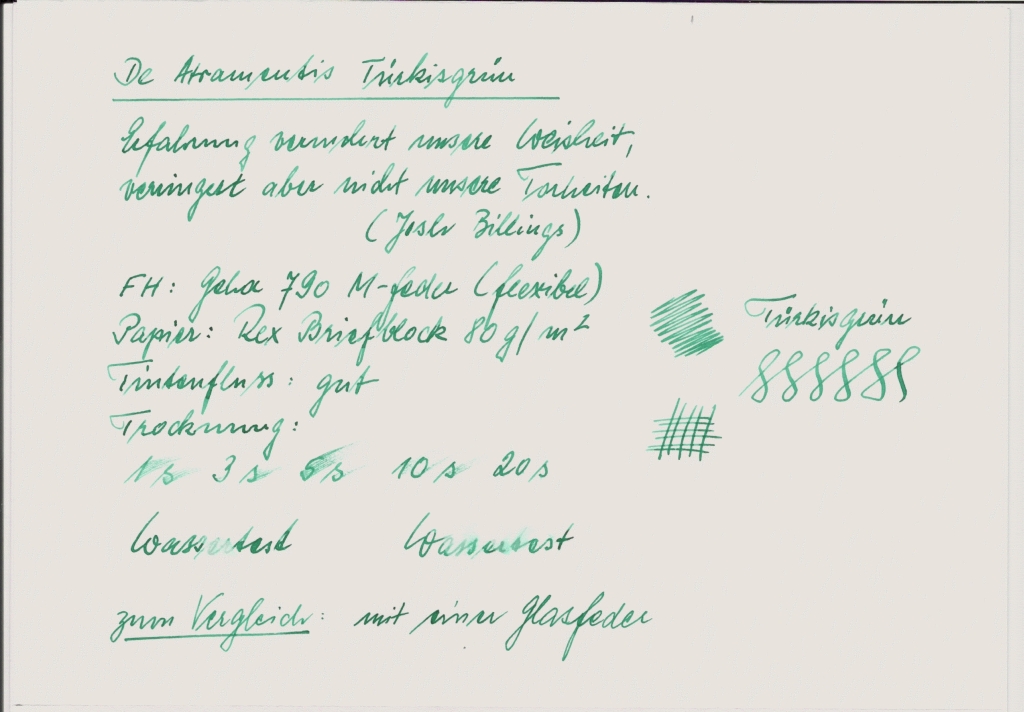 De Atramentis Türkisgrün
Erfahrung vermehrt unsere Weisheit,
verringert aber nicht unsere Torheiten.
(Josh Billings)
FH: Geha 790 M-feder (flexibel)
Papier: Rex Briefblock 80 g/m²
Türkisgrün
Tintenfluss: gut
Trocknung:
1 s 3 s 5 s 10 s 20 s
Wassertest Wassertest
zum Vergleich: mit einer Glasfeder